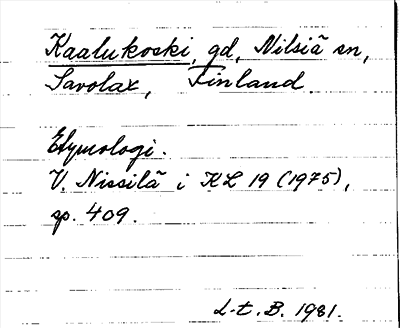 Kaalukoski, gd, Nilsiä sn,
Savolax, Finland.
Etymologi.
V. Nissilä i KL 19 (1975),
sp. 409.
L-t. B. 1981.